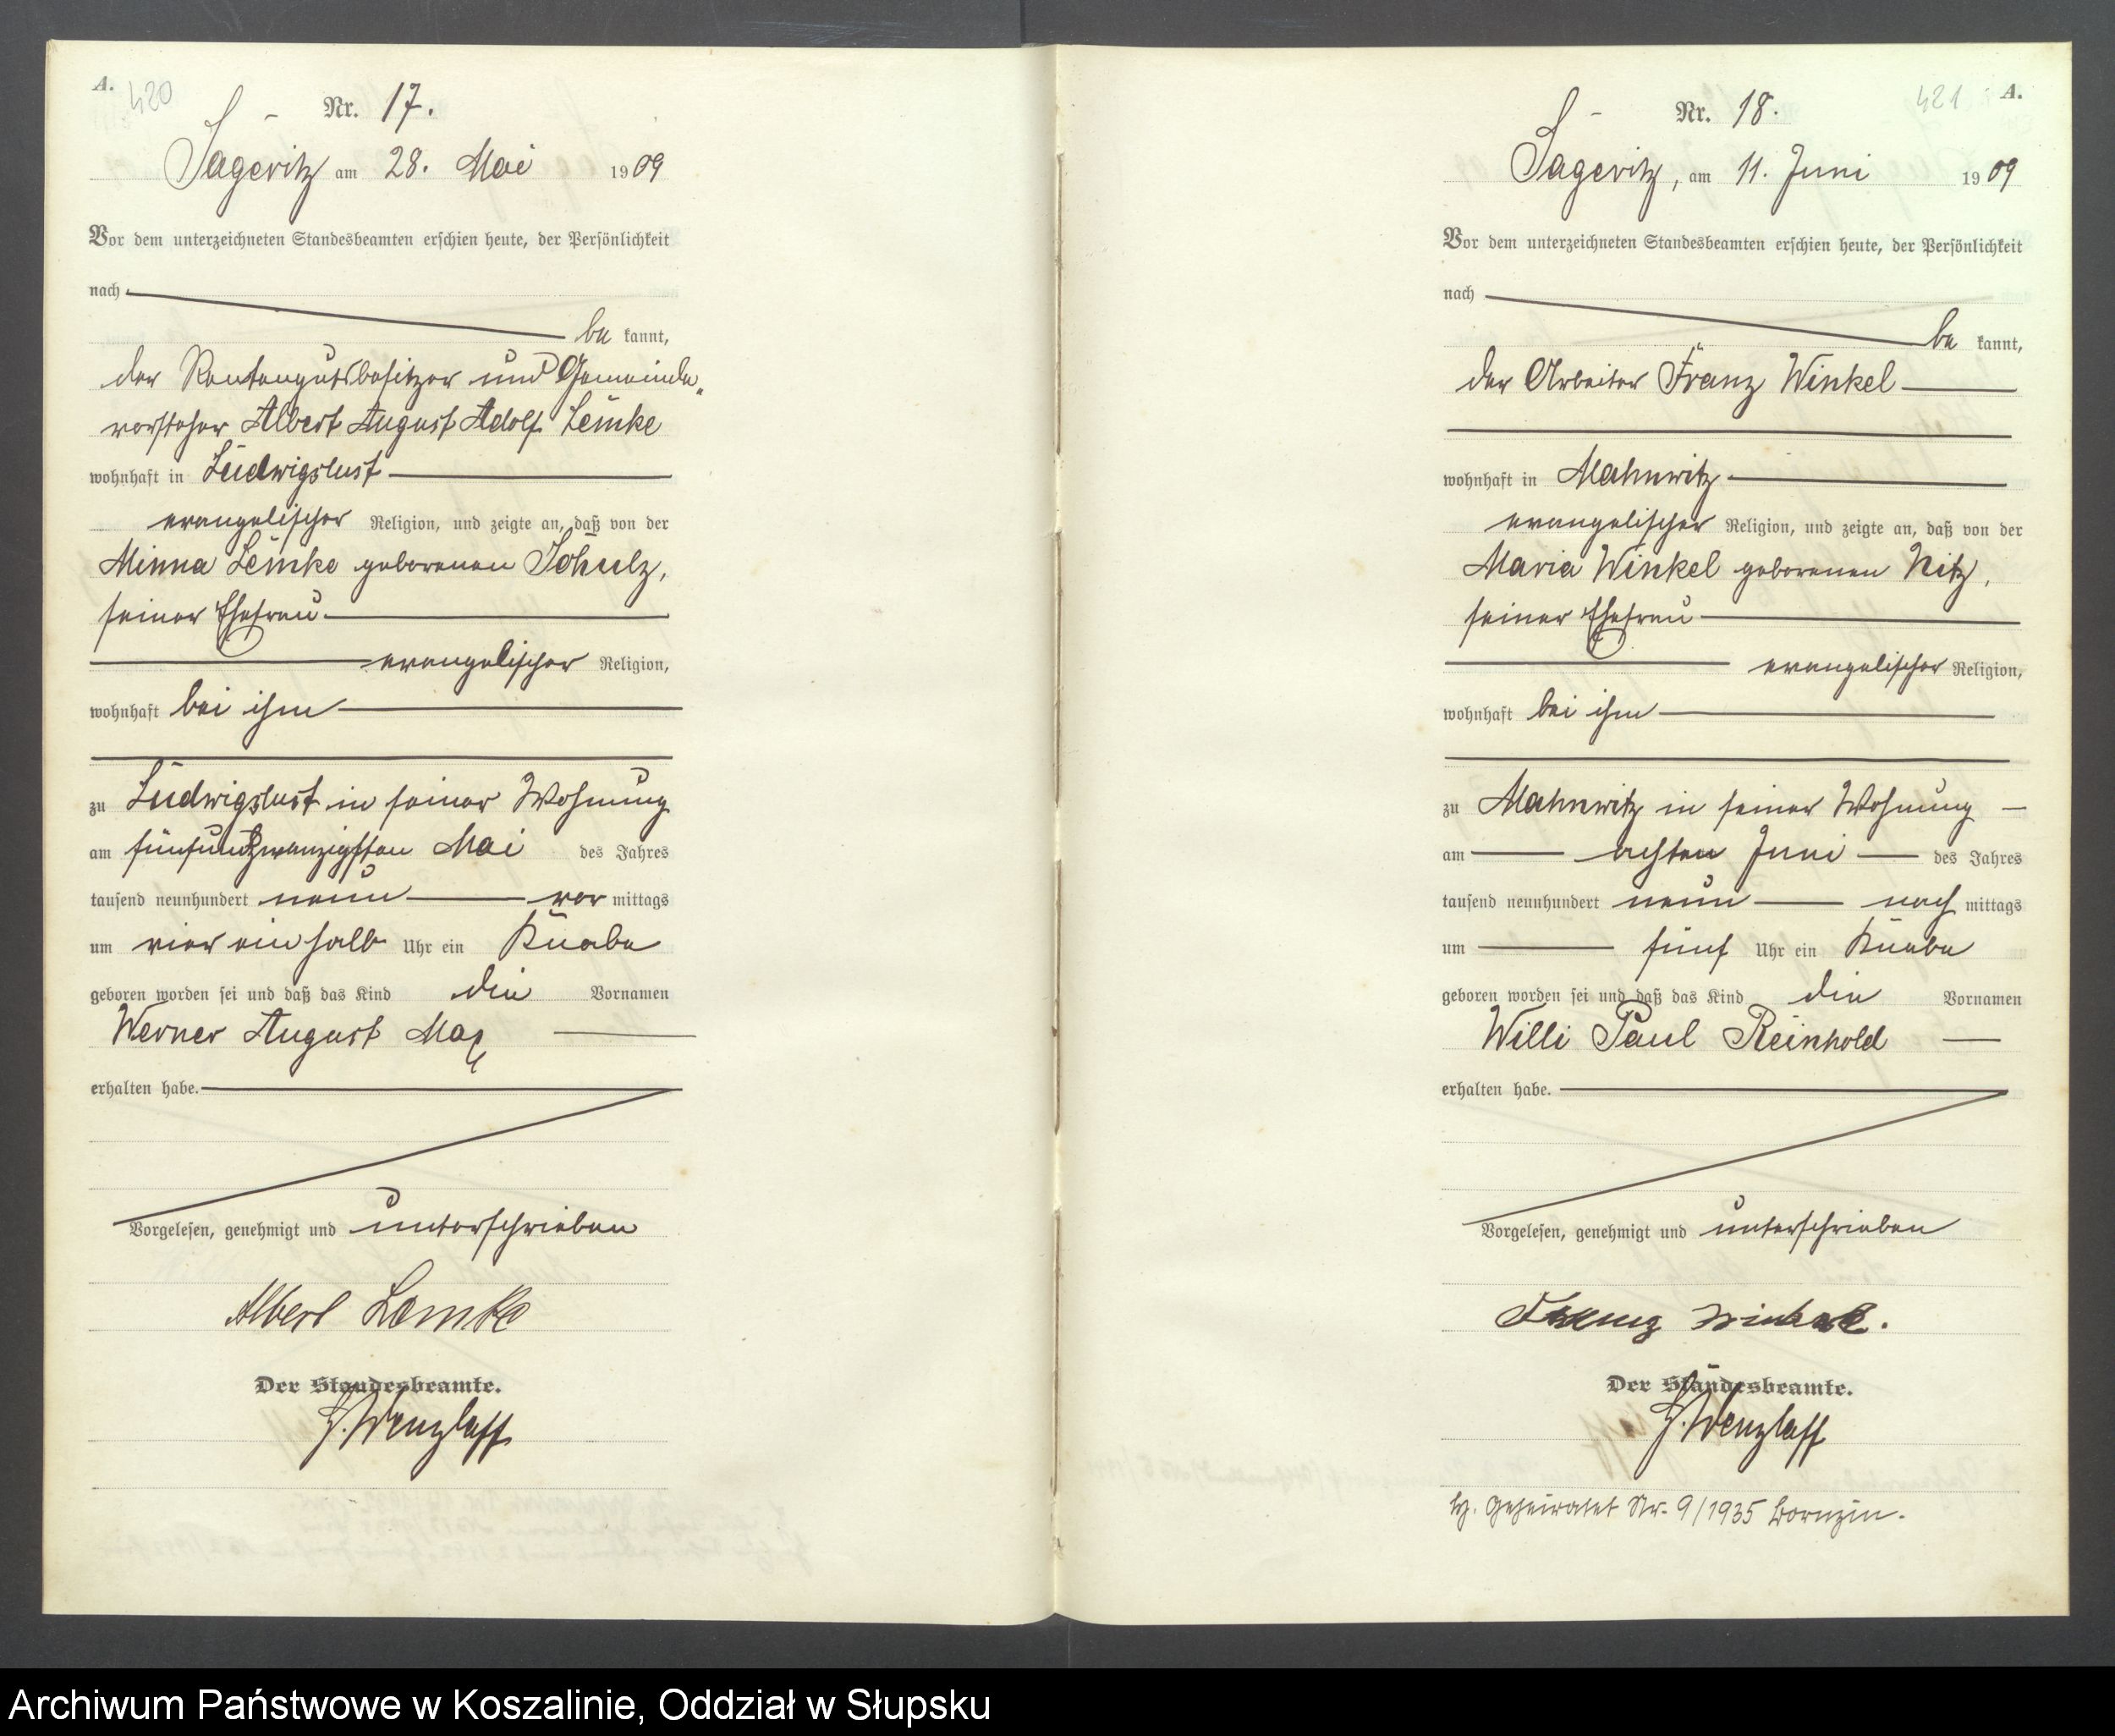 A.
420
Nr. 17.
Sageritz am 28. Mai 1909
Vor dem unterzeichneten Standesbeamten erschien heute, der Persönlichkeit
nach
be kannt,
der Rentengutsbesitzer und Gemeinde-
vorsteher Albert August Adolf Lemke
wohnhaft in Ludwigslust
evangelischer Religion, und zeigte an, daß von der
Minna Lemke geborenen Schulz,
seiner Ehefrau
evangelischer Religion,
wohnhaft bei ihm
zu Ludwigslust in seiner Wohnung
am fünfundzwanzigsten Mai des Jahres
tausend neunhundert neun vor mittags
um vier ein halb Uhr ein Knabe
geboren worden sei und daß das Kind die Vornamen
Werner August Max
erhalten habe.
Vorgelesen, genehmigt und unterschrieben
Albert Lemke
Der Standesbeamte.
H. Wenzlaff
421
A.
Nr. 18.
Sageritz, am 11. Juni 1909
Vor dem unterzeichneten Standesbeamten erschien heute, der Persönlichkeit
nach
be kannt,
der Arbeiter Franz Winkel
wohnhaft in Mahnwitz
evangelischer Religion, und zeigte an, daß von der
Maria Winkel geborenen Nitz,
seiner Ehefrau
evangelischer Religion,
wohnhaft bei ihm
zu Mahnwitz in seiner Wohnung
am achten Juni des Jahres
tausend neunhundert neun nach mittags
um fünf Uhr ein Knabe
geboren worden sei und daß das Kind die Vornamen
Willi Paul Reinhold
erhalten habe.
Vorgelesen, genehmigt und unterschrieben
Franz Winkel.
Der Standesbeamte.
H. Wenzlaff
Geheiratet Nr. 9/1935 Bornzin.
Archiwum Państwowe w Koszalinie, Oddział w Słupsku